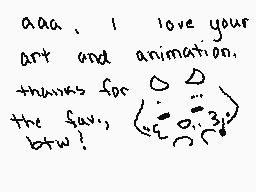 aaa. I love your
art and animation.
thanks for
the fav.,
btw!